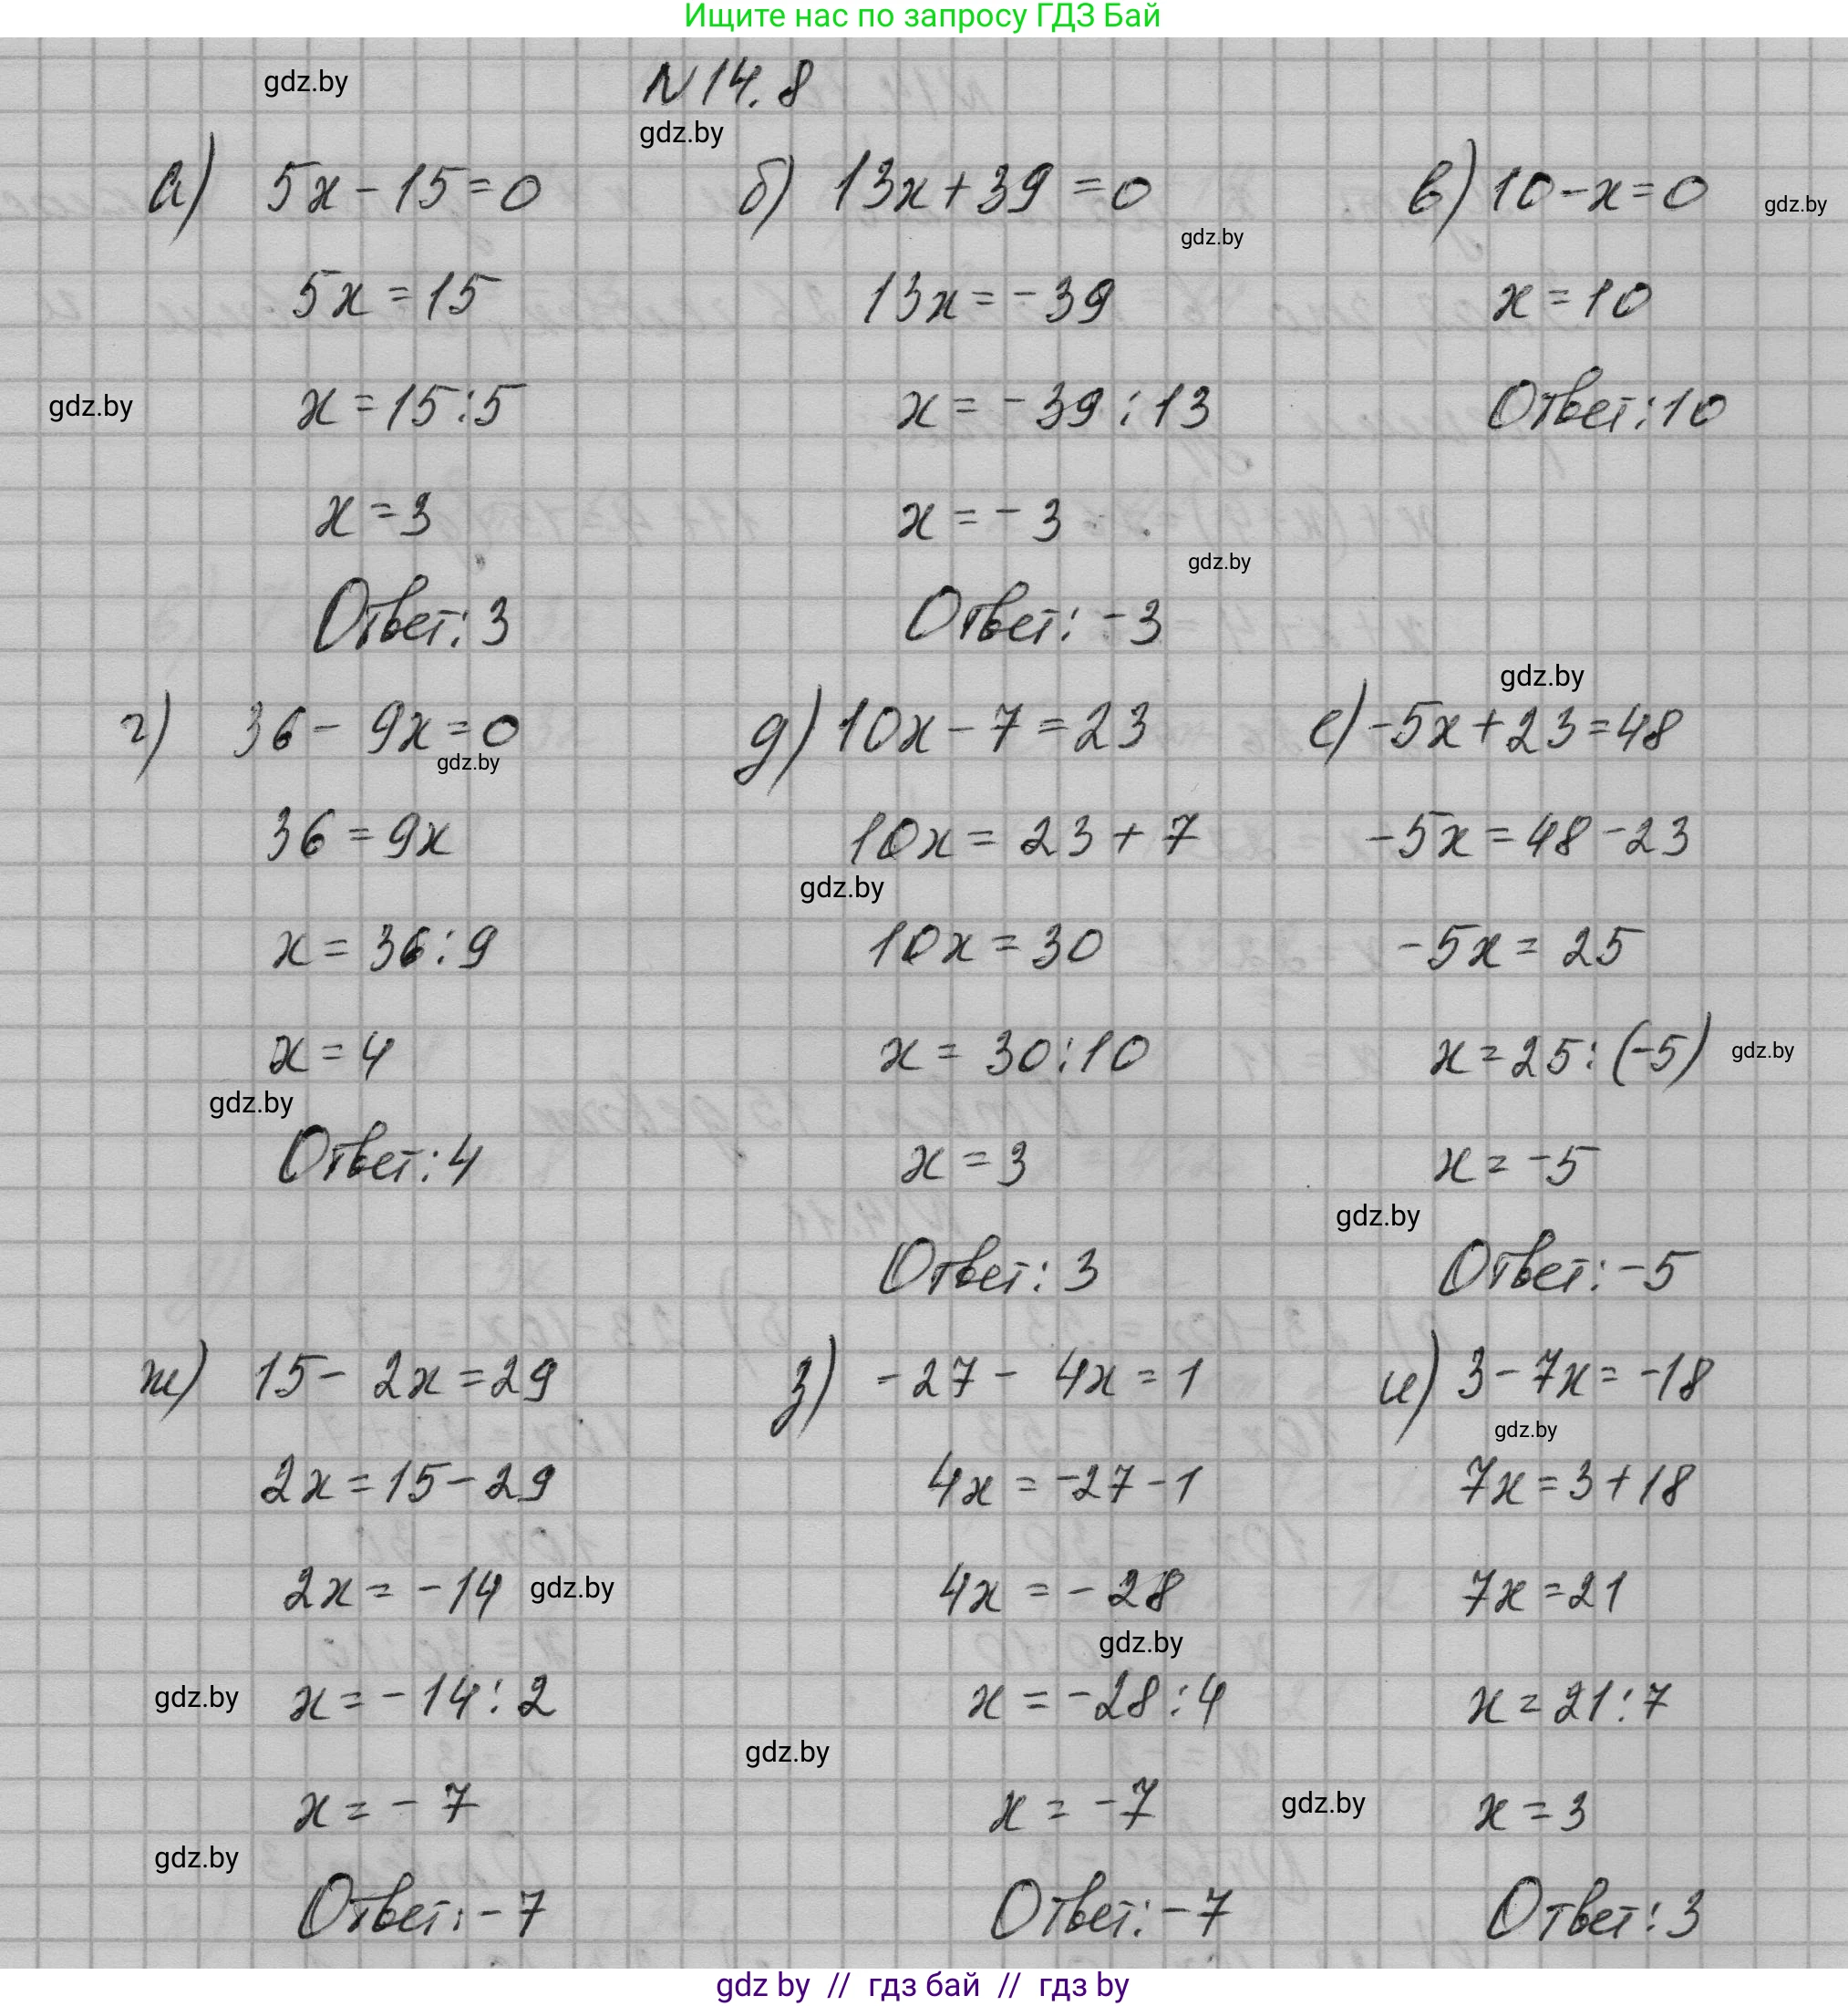 Ищите нас по запросу ГДЗ Бай
gdz.by
N 14.8
gdz.by
а) 5x - 15 = 0
5x = 15
gdz.by
x = 15 : 5
x = 3
Ответ: 3
б) 13x + 39 = 0
gdz.by
13x = -39
x = -39 : 13
x = -3
gdz.by
Ответ: -3
в) 10 - x = 0
gdz.by
x = 10
Ответ: 10
г) 36 - 9x = 0
gdz.by
36 = 9x
x = 36 : 9
x = 4
gdz.by
Ответ: 4
д) 10x - 7 = 23
10x = 23 + 7
gdz.by
10x = 30
x = 30 : 10
x = 3
Ответ: 3
gdz.by
е) -5x + 23 = 48
-5x = 48 - 23
-5x = 25
x = 25 : (-5)
gdz.by
x = -5
gdz.by
Ответ: -5
ж) 15 - 2x = 29
2x = 15 - 29
2x = -14
gdz.by
gdz.by
x = -14 : 2
x = -7
gdz.by
Ответ: -7
з) -27 - 4x = 1
4x = -27 - 1
4x = -28
gdz.by
x = -28 : 4
gdz.by
x = -7
Ответ: -7
и) 3 - 7x = -18
gdz.by
7x = 3 + 18
7x = 21
x = 21 : 7
gdz.by
x = 3
Ответ: 3
gdz by // гдз бай // гдз by